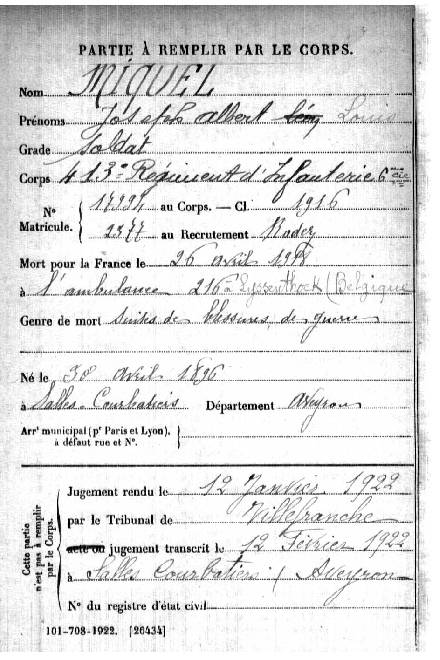 PARTIE À REMPLIR PAR LE CORPS.
Nom MIQUEL
Prénoms Joseph Albert Louis
Grade Soldat
Corps 413e Régiment d'Infanterie 6me Cie
N° Matricule. { au Corps. — Cl. 1916
2377 au Recrutement Rodez
Mort pour la France le 26 avril 1918
à l'ambulance 216 à Lyssenthock (Belgique
Genre de mort suites de blessures de guerre
Né le 30 avril 1896
à Salles-Courbatiers Département Aveyron
Arrt municipal (pr Paris et Lyon), à défaut rue et N°. }
Cette partie n'est pas à remplir par le Corps.
Jugement rendu le 12 Janvier 1922
par le Tribunal de Villefranche
acte ou jugement transcrit le 12 Février 1922
à Salles Courbatiers (Aveyron
N° du registre d'état civil
101-708-1922. [26434]